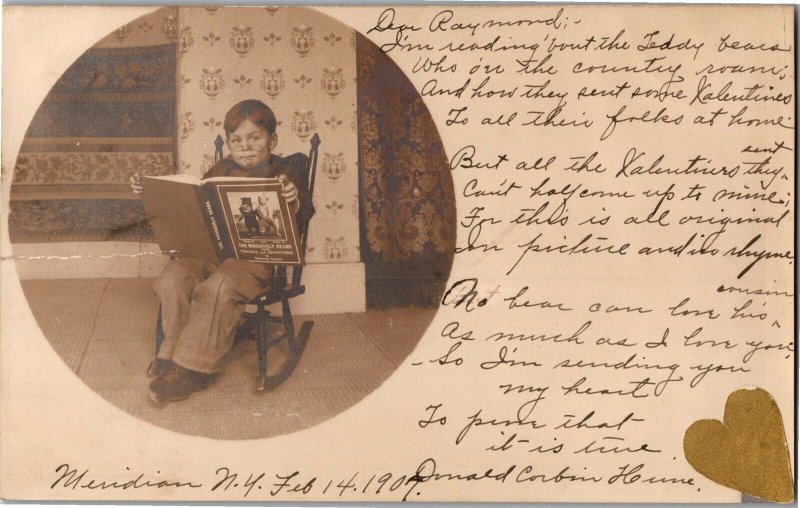 Dear Raymond;-
I'm reading 'bout the Teddy bears
Who o'er the country roam;
And how they sent some Valentines
To all their folks at home.
But all the Valentines they sent
Can't half come up to mine;
For this is all original
In picture and in rhyme.
No bear can love his cousin
As much as I love you,
So I'm sending you
my heart
To prove that
it is true.
Donald Corbin Hume.
Meridian N.Y. Feb 14. 1907.
THE ROOSEVELT BEARS
THE ROOSEVELT BEARS
THEIR TRAVELS AND ADVENTURES